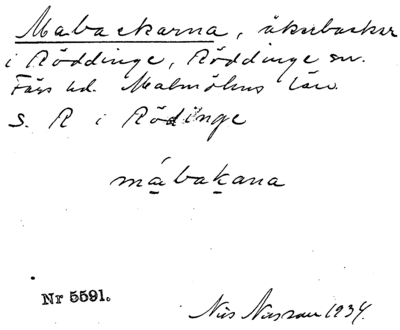 Mabackarna, åkerbackar
i Röddinge, Röddinge sn.
Färs hd. Malmöhus län.
S. R i Rödinge
mábakana
Nr 5591.
Nils 1934.